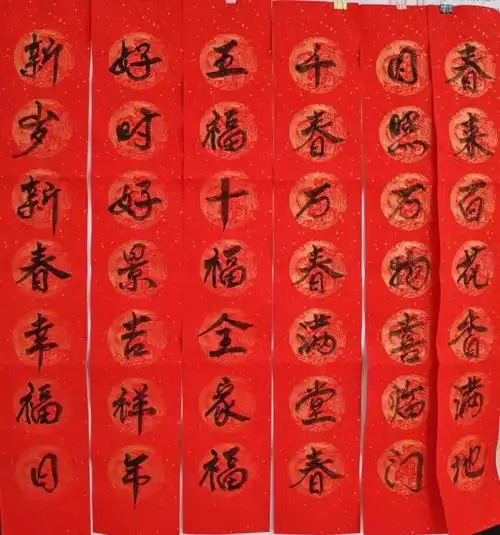 春来百花香满地
日照万物喜临门
千春万春满堂春
五福十福全家福
好时好景吉祥年
新岁新春幸福日